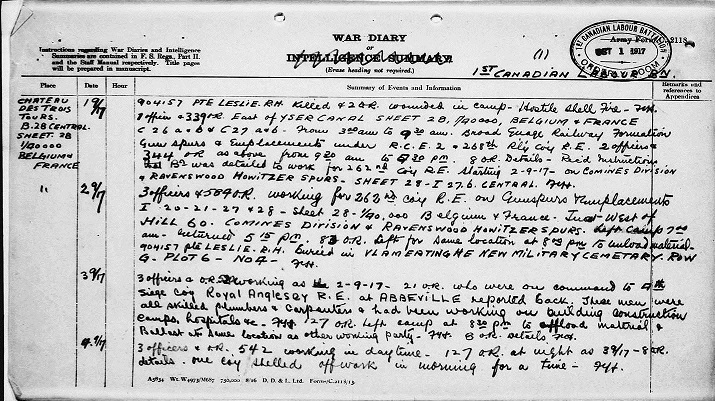 WAR DIARY
or
INTELLIGENCE SUMMARY.
(Erase heading not required.)
Instructions regarding War Diaries and Intelligence
Summaries are contained in F. S. Regs., Part II.
and the Staff Manual respectively. Title pages
will be prepared in manuscript.
(1)
Army Form C. 2118
1ST CANADIAN LABOUR BATTALION
OCT 1 1917
ORDERLY ROOM
1ST CANADIAN LABOUR BN.
Place Date Hour Summary of Events and Information Remarks and
references to
Appendices
CHATEAU
DES TROIS
TOURS.
B.28 CENTRAL.
SHEET. 28
1/40000
BELGIUM &
FRANCE
1 9/17
904157 PTE LESLIE. R.H. Killed & 2 O.R. wounded in camp - Hostile Shell Fire -
1 Officer & 339 O.R. East of YSER CANAL SHEET 28, 1/40,000, BELGIUM & FRANCE
C 26 a & b & C 27 a & b - From 3:00 am to 9:30 am. Broad Guage Railway Formation
Gun spurs & Emplacements under R.C.E. 2 & 268th Rly Coy R.E. 2 officers &
344 O.R. as above from 9:30 am to 4:30 pm. 8 O.R. Details - Rec'd Instructions
Bn was detailed to work for 262nd Coy R.E. Starting 2-9-17 - on COMINES DIVISION
& RAVENSWOOD HOWITZER SPURS - SHEET 28 - I 27.b. CENTRAL.
" 2 9/17
3 officers & 589 O.R. working for 262nd Coy R.E. on Gunspurs & Emplacements
I 20-21-27 & 28 - Sheet 28 - 1/40,000 Belgium & France. Just West of
HILL 60. COMINES DIVISION & RAVENSWOOD HOWITZER SPURS. Left Camp 7:00
am - Returned 5:15 pm. 83 O.R. Left for same location at 8:00 pm to unload material -
904157 pte LESLIE. R.H. Buried in VLAMERTINGHE NEW MILITARY CEMETARY. ROW
G - PLOT 6 - NO 9 -
3 9/17
3 officers & O.R. working as 2-9-17 - 21 O.R. who were on command to
Siege Coy Royal Anglesey R.E. at ABBEVILLE reported back. These men were
all skilled plumbers & carpenters & had been working on building construction
Camps, hospitals &c - 127 O.R. left camp at 8:30 pm to offload material &
Ballast at same location as other working party - 8 O.R. details
4. 9/17
3 officers & O.R. 542 working in daytime - 127 O.R. at night as 3 9/17 - 8 O.R.
details. One coy shelled off work in morning for a time -
A5834 Wt. W4973/M687 750,000 8/16 D. D. & L. Ltd. Forms/C.2118/13.